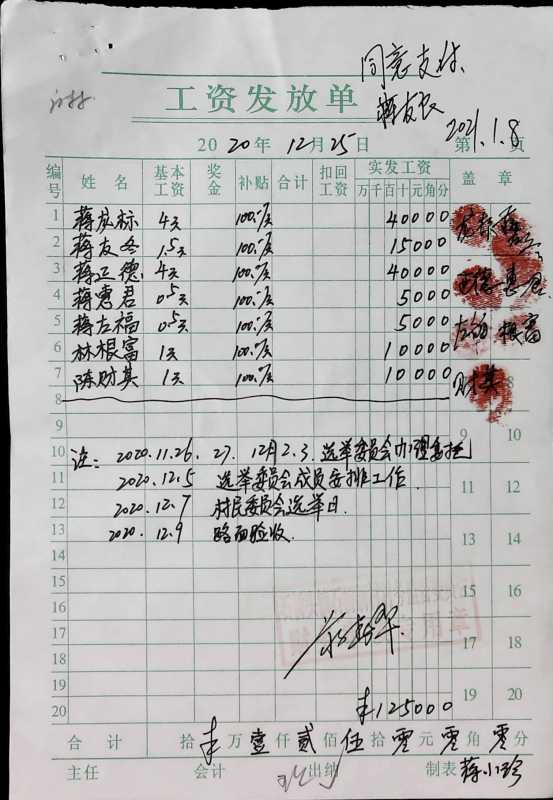 同意支付
蒋友农
2021.1.8
工资发放单
2020年12月25日 第 页
编号 姓名 基本工资 奖金 补贴 合计 扣回工资 实发工资 万千百十元角分 盖章
1 4天 100.-/天 40000
2 蒋友冬 1.5天 100.-/天 15000
3 蒋正德 4天 100.-/天 40000
4 蒋惠君 0.5天 100.-/天 5000
5 蒋左福 0.5天 100.-/天 5000
6 林根富 1天 100.-/天 10000
7 陈财其 1天 100.-/天 10000
8
9 10
10 注: 2020.11.26. 27. 12月2.3. 选举委员会办理
11 2020.12.5 选举委员会成员安排工作. 11 12
12 2020.12.7 村民委员会选举日.
13 2020.12.9 路面验收. 13 14
14
15 15 16
16
17 17 18
18
19 19 20
20 ¥125000
合计 拾 万壹仟贰佰伍拾零元零角零分
主任 会计 出纳 制表 蒋小珍